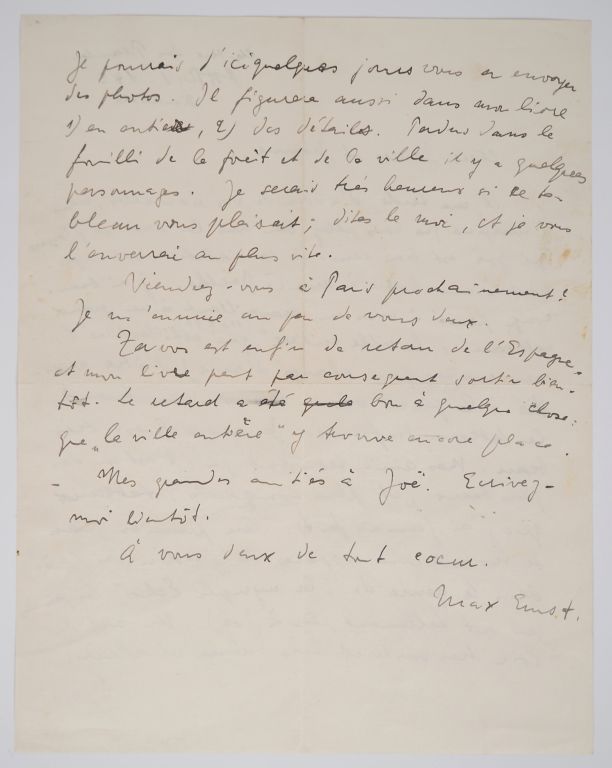 Je pourrais d'ici quelques jours vous en envoyer
des photos. Il figurera aussi dans mon livre
1) en entier, 2) des détails. Perdus dans le
fouilli de la forêt et de la ville il y a quelques
personnages. Je serais très heureux si ce ta-
bleau vous plaisait; dites le moi, et je vous
l'enverrai au plus vite.
Viendrez-vous à Paris prochainement?
Je m'ennuie un peu de vous deux.
Zervos est enfin de retour de l'Espagne
et mon livre peut par conséquent sortir bien-
tôt. Le retard a été bon à quelque chose:
que "la ville entière" y trouve encore place.
- Mes grandes amitiés à Joë. Ecrivez-
moi bientôt.
À vous deux de tout coeur.
Max Ernst.